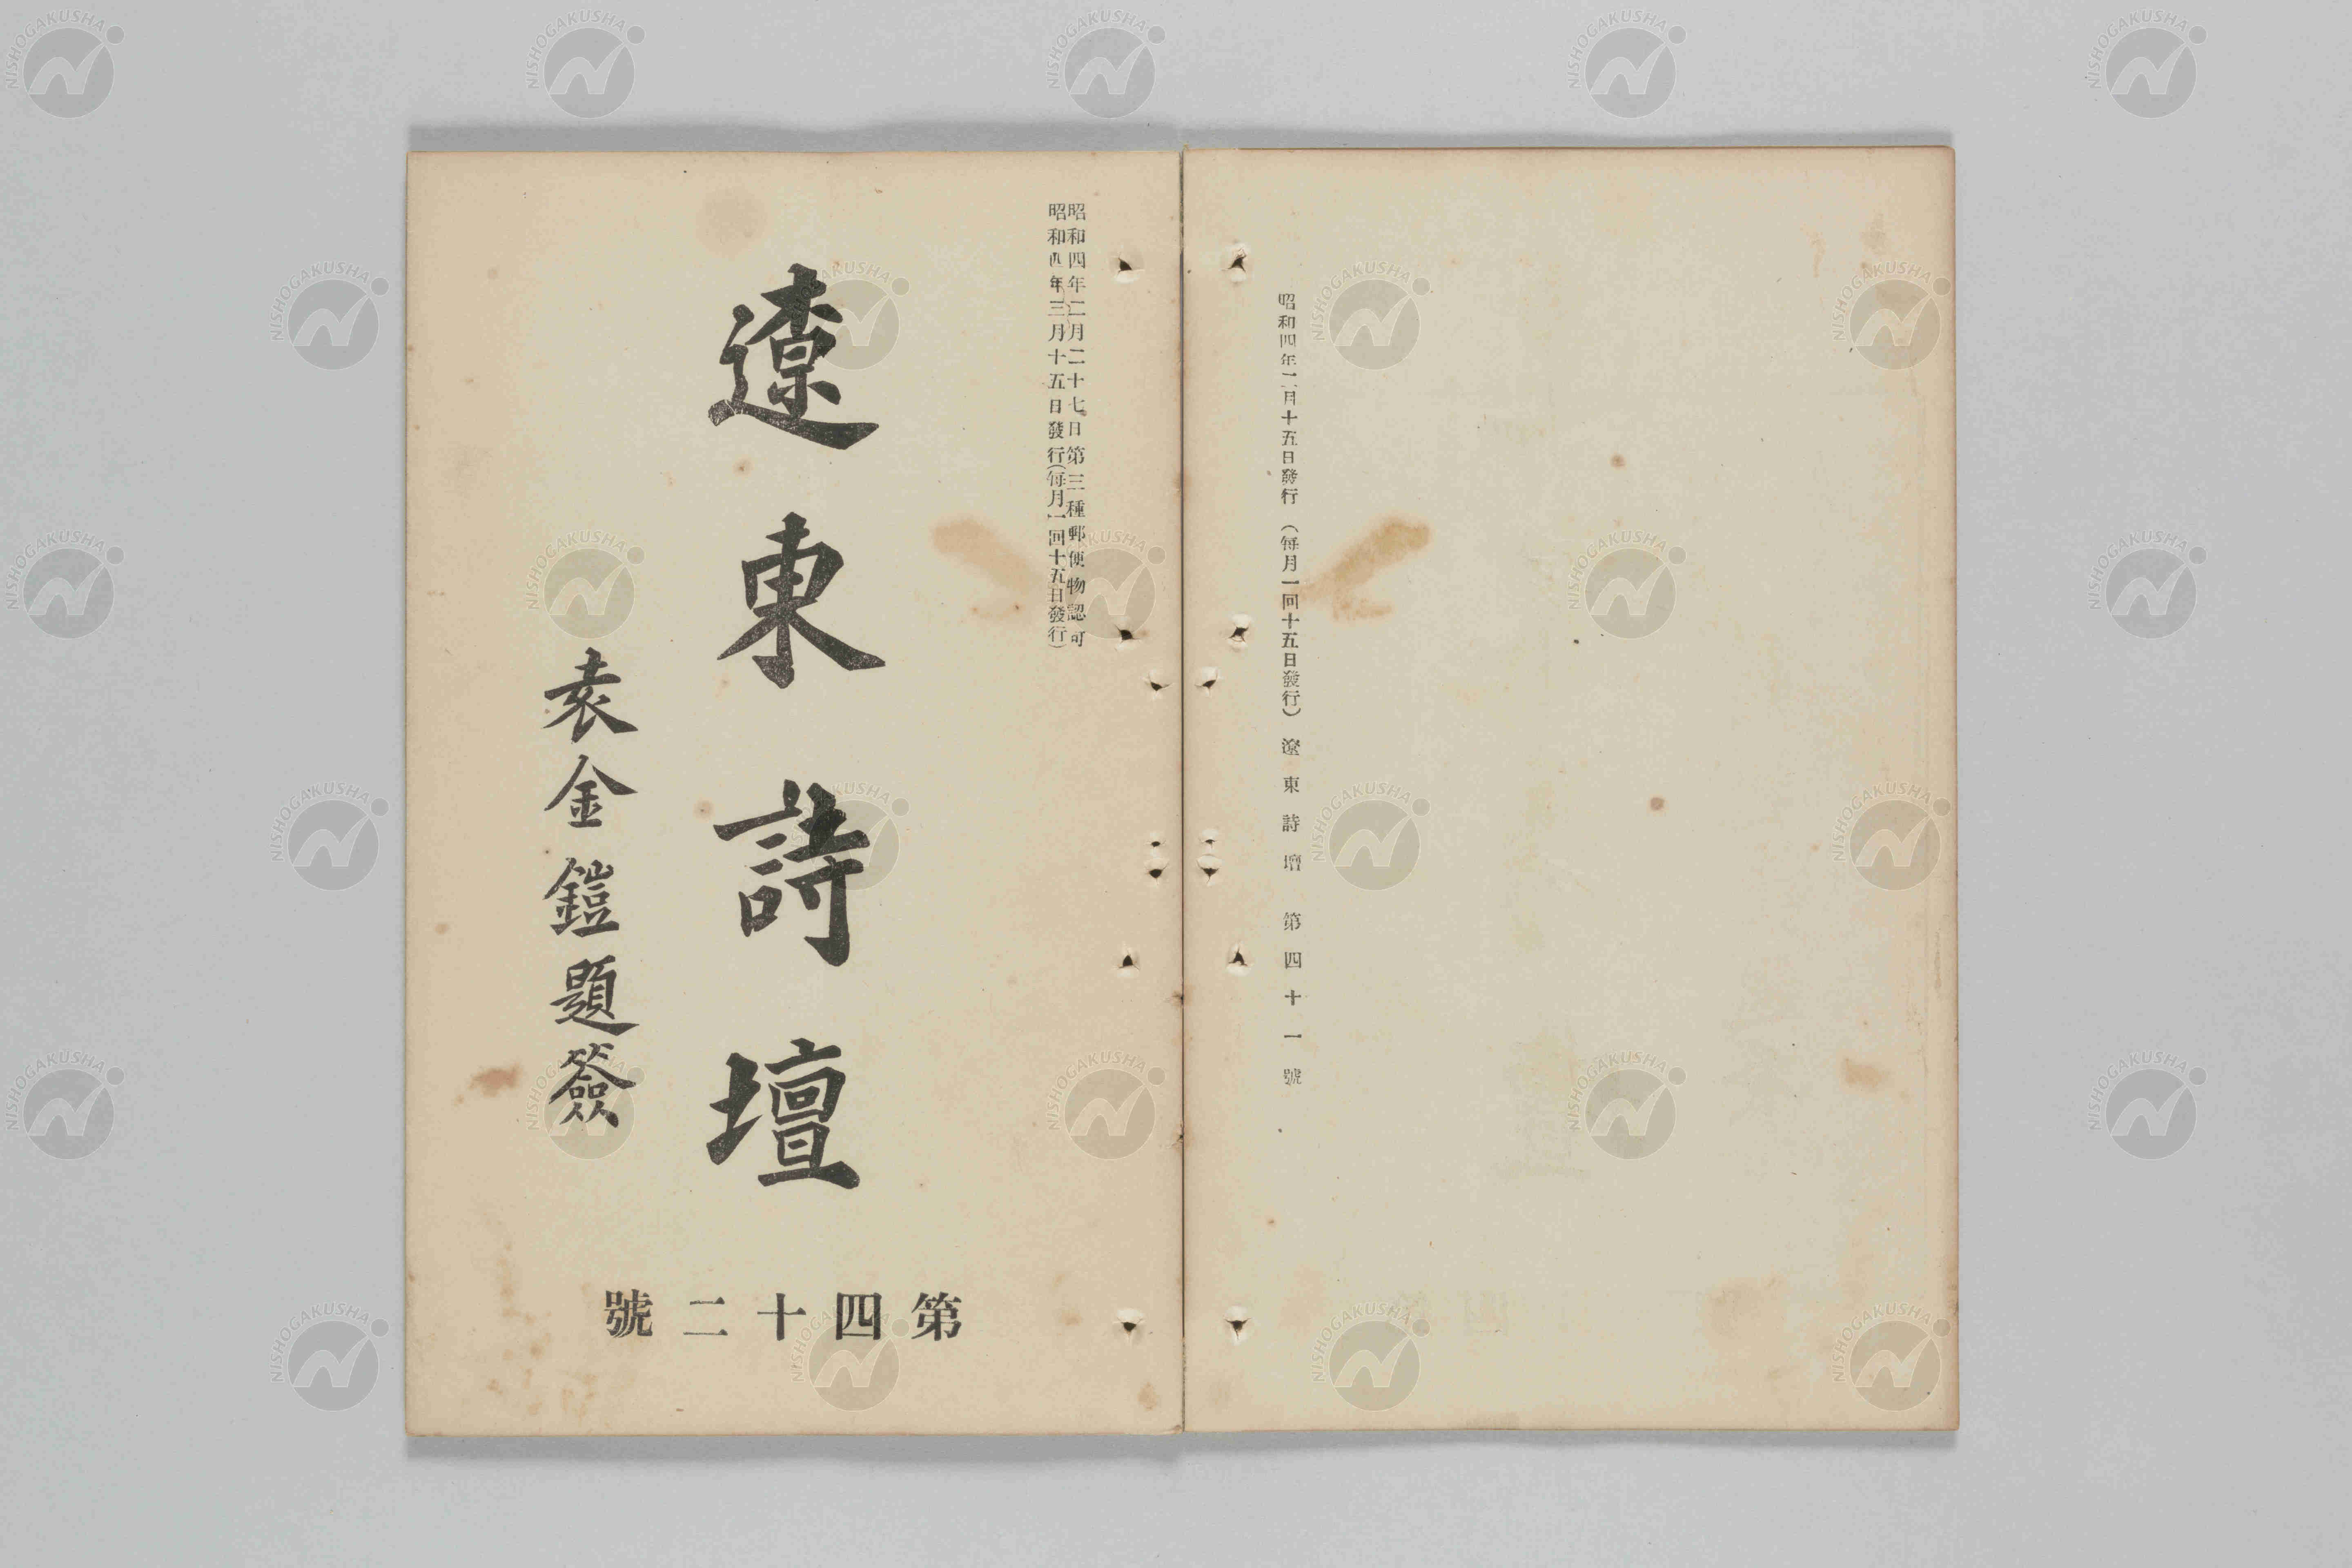 昭和四年二月十五日發行 (每月一回十五日發行) 遼東詩壇 第四十一號
昭和四年二月二十七日第三種郵便物認可
昭和四年三月十五日發行(每月一回十五日發行)
遼東詩壇
袁金鎧題簽
第四十二號
NISHOGAKUSHA